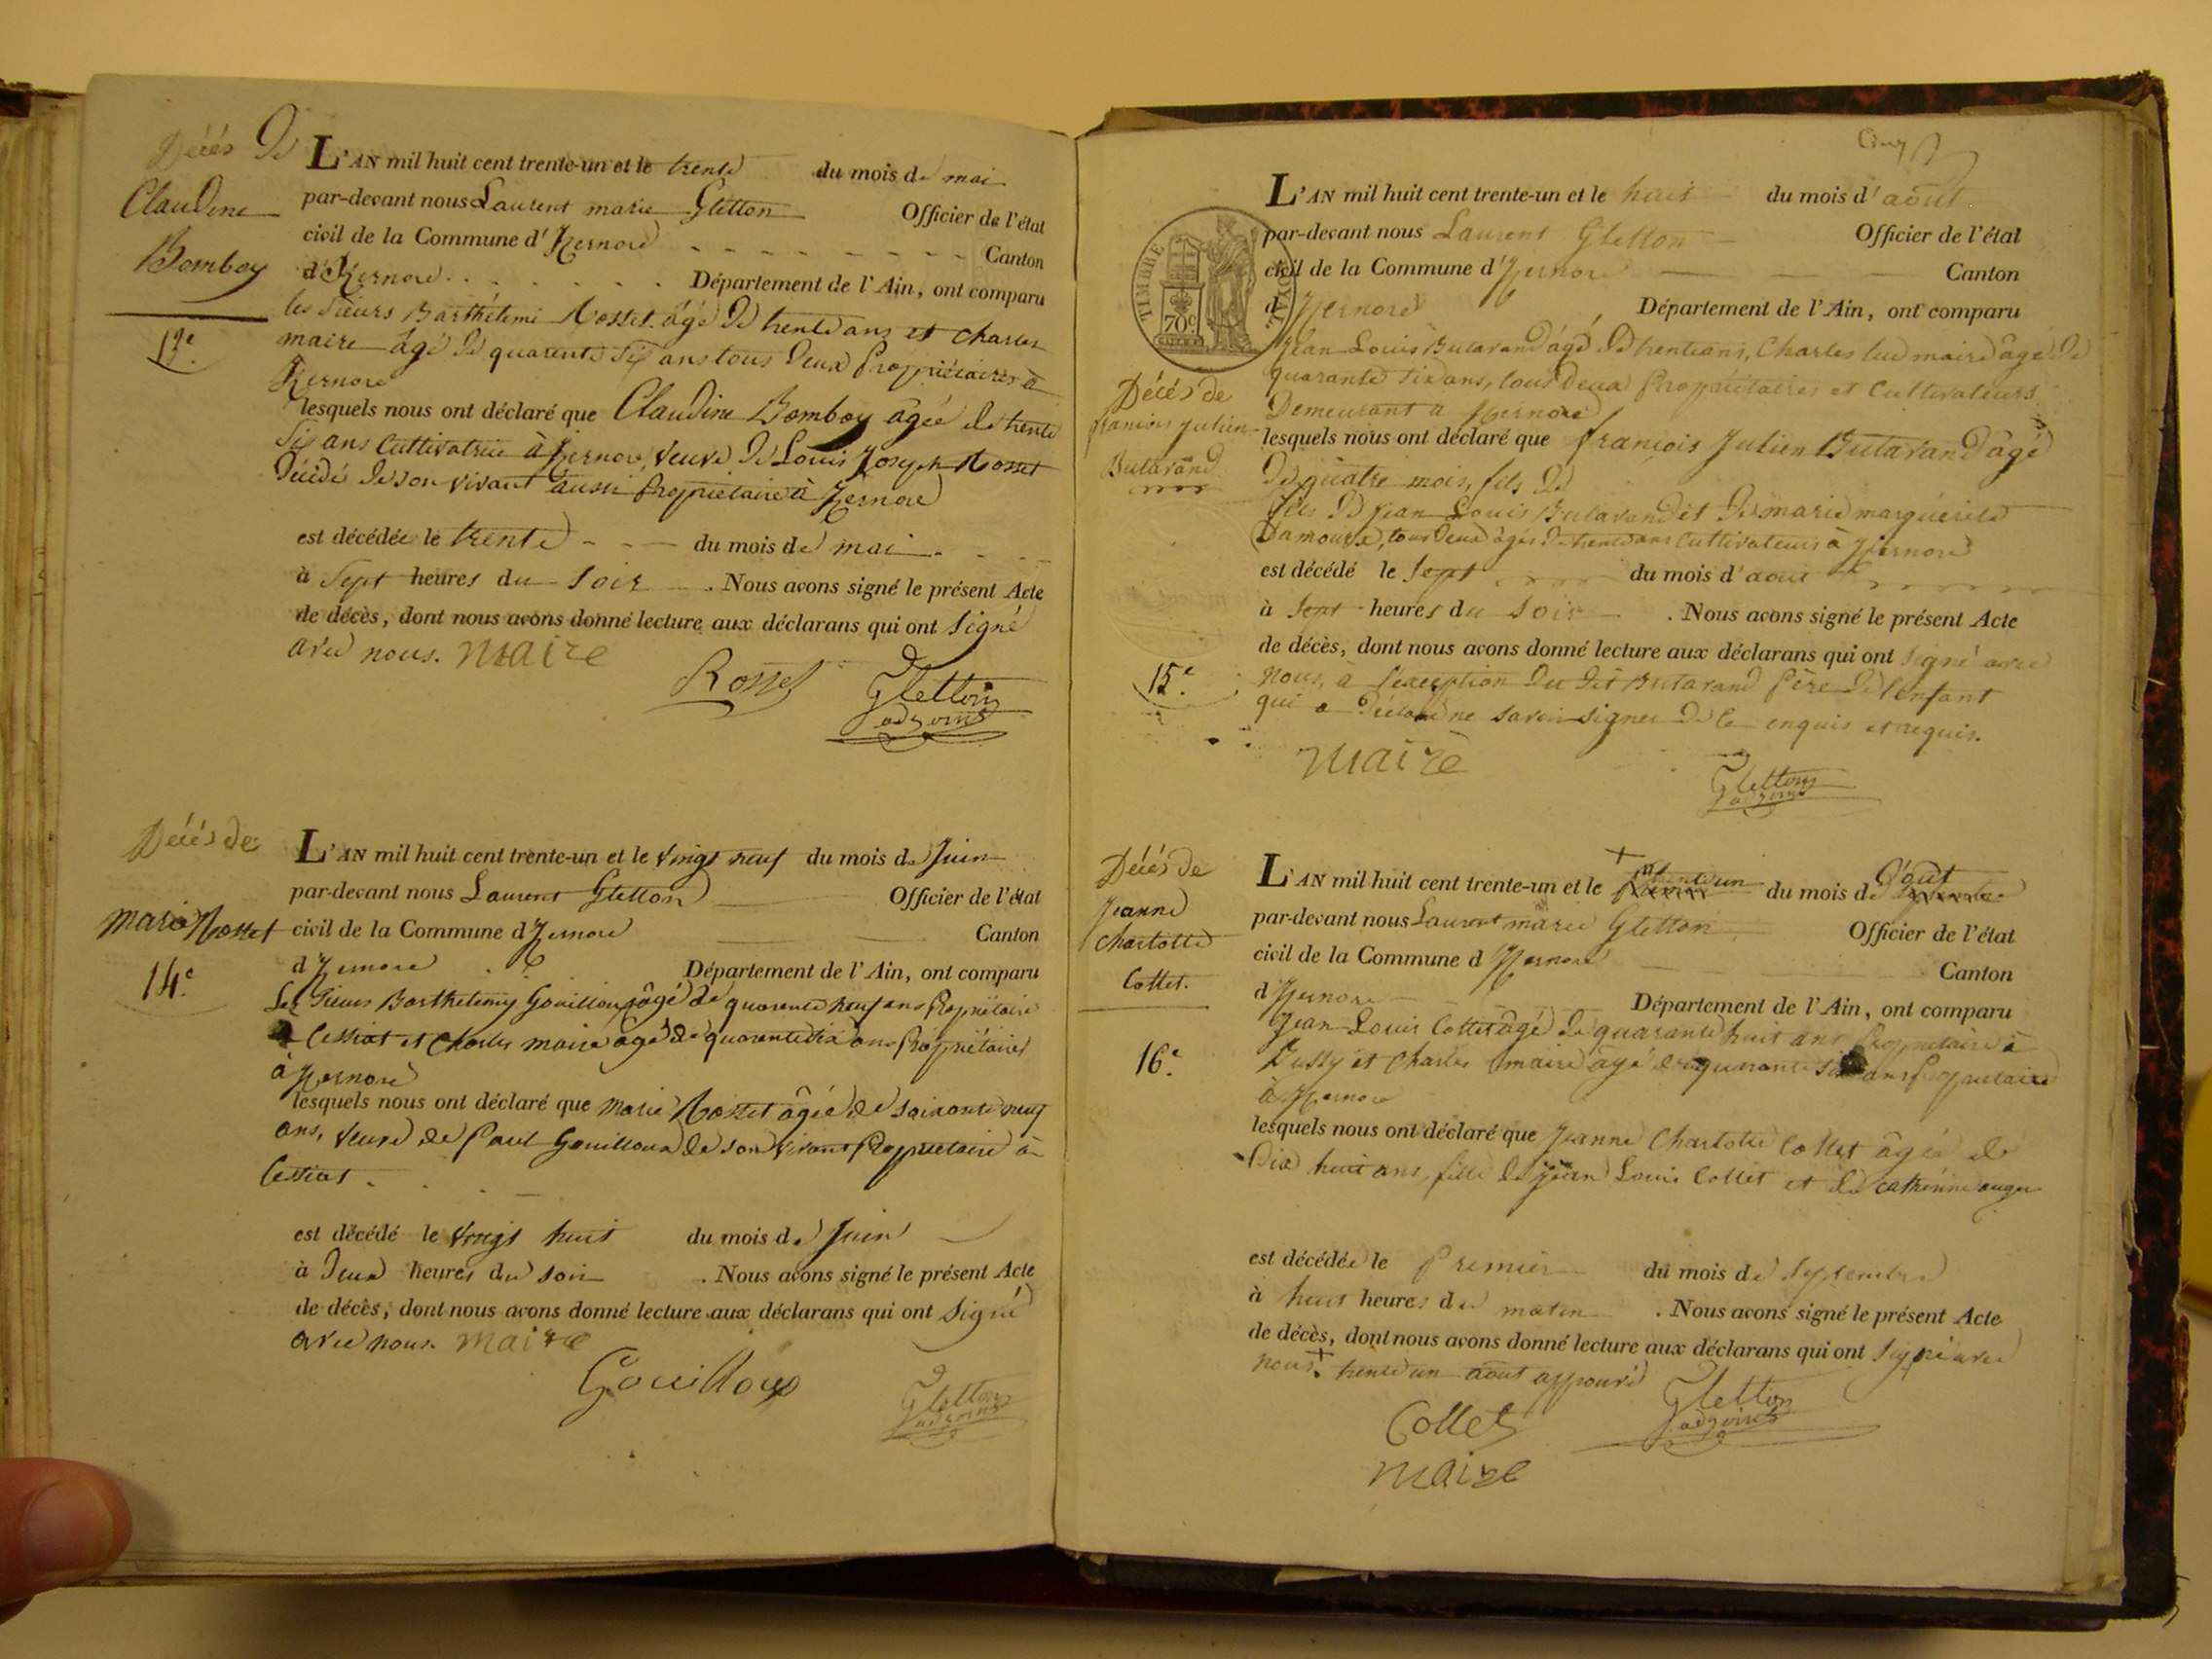 Décès De
Claudine
Bomboy
13e.
L'AN mil huit cent trente-un et le trente du mois de mai
par-devant nous Laurent marie Gletton Officier de l'état
civil de la Commune d'Izernore Canton
d'Izernore Département de l'Ain, ont comparu
les Sieurs Barthélemi Rosset âgé De trente ans et Charles
maire âgé De quarente Six ans tous Deux Propriétaires à
Izernore
lesquels nous ont déclaré que Claudine Bomboy âgée de trente
Six ans Cultivatrice à Izernore, veuve De Louis Joseph Rosset
Décédé De son vivant aussi Propriétaire à Izernore
est décédée le trente du mois de mai
à Sept heures du Soir . Nous avons signé le présent Acte
de décès, dont nous avons donné lecture aux déclarans qui ont Signé
avec nous. maire
Rosset
Gletton
adjoint
Décès de
Marie Rosset
14e.
L'AN mil huit cent trente-un et le vingt neuf du mois de Juin
par-devant nous Laurent Gletton Officier de l'état
civil de la Commune d'Izernore Canton
d'Izernore Département de l'Ain, ont comparu
Les Sieurs Barthelemy Gouilloux âgé de quarente neuf ans Propriétaire
à Cessiat et Charles maire âgé de quarente six ans Propriétaires
à Izernore
lesquels nous ont déclaré que Marie Rosset âgée de soixante neuf
ans, veuve de Paul Gouilloux de son vivant Propriétaire à
Cessiat.
est décédé le vingt huit du mois de Juin
à Deux heures du soir . Nous avons signé le présent Acte
de décès, dont nous avons donné lecture aux déclarans qui ont Signé
avec nous. maire
Gouilloux
Gletton
adjoint
Cinq
TIMBRE ROYAL
70c
Décès de
francois julien
Butavand
15e.
L'AN mil huit cent trente-un et le huit du mois d'août
par-devant nous Laurent Gletton Officier de l'état
civil de la Commune d'Izernore Canton
d'Izernore Département de l'Ain, ont comparu
Jean Louis Butavand âgé De trente ans, Charles maire âgé De
quarante six ans, tous Deux Propriétaires et Cultivateurs
Demeurant à Izernore
lesquels nous ont déclaré que francois Julien Butavand âgé
De quatre mois, fils De
fils De Jean Louis Butavand et De marie marguérite
Damoux, tous Deux âgés De trente ans Cultivateurs à Izernore
est décédé le Sept du mois d'aout
à Sept heures du Soir . Nous avons signé le présent Acte
de décès, dont nous avons donné lecture aux déclarans qui ont Signé avec
Nous, à l'exception Du Dit Butavand Père De l'enfant
qui a Déclaré ne savoir signer De ce enquis et requis.
maire
Gletton
adjoint
Décès de
Jeanne
Charlotte
Collet.
16e.
L'AN mil huit cent trente-un et le trente un du mois de d'out
par-devant nous Laurent marie Gletton Officier de l'état
civil de la Commune d'Izernore Canton
d'Izernore Département de l'Ain, ont comparu
Jean Louis Collet âgé De quarante huit ans Propriétaire à
Bussy et Charles maire âgé de quarante six ans Propriétaire
à Izernore
lesquels nous ont déclaré que Jeanne Charlotte Collet âgée de
Dix huit ans, fille de Jean Louis Collet et de Cathérine auger
est décédée le Premier du mois de Septembre
à huit heures du matin . Nous avons signé le présent Acte
de décès, dont nous avons donné lecture aux déclarans qui ont Signé avec
nous. + trente un aout approuvé
Gletton
adjoint
Collet
maire